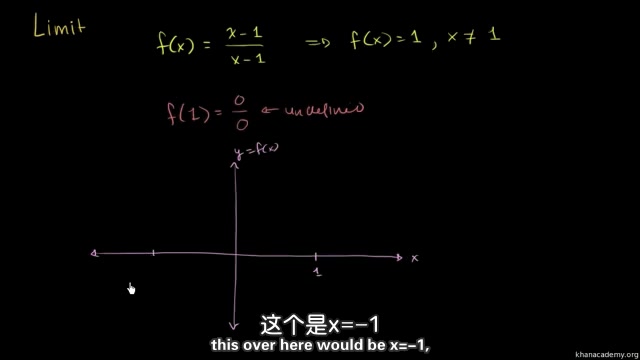 Limit
f(x) = x-1 / x-1 ⇒ f(x) = 1 , x ≠ 1
f(1) = 0 / 0 ← undefined
y = f(x)
x
1
这个是x=-1
this over here would be x=-1,
khanacademy.org